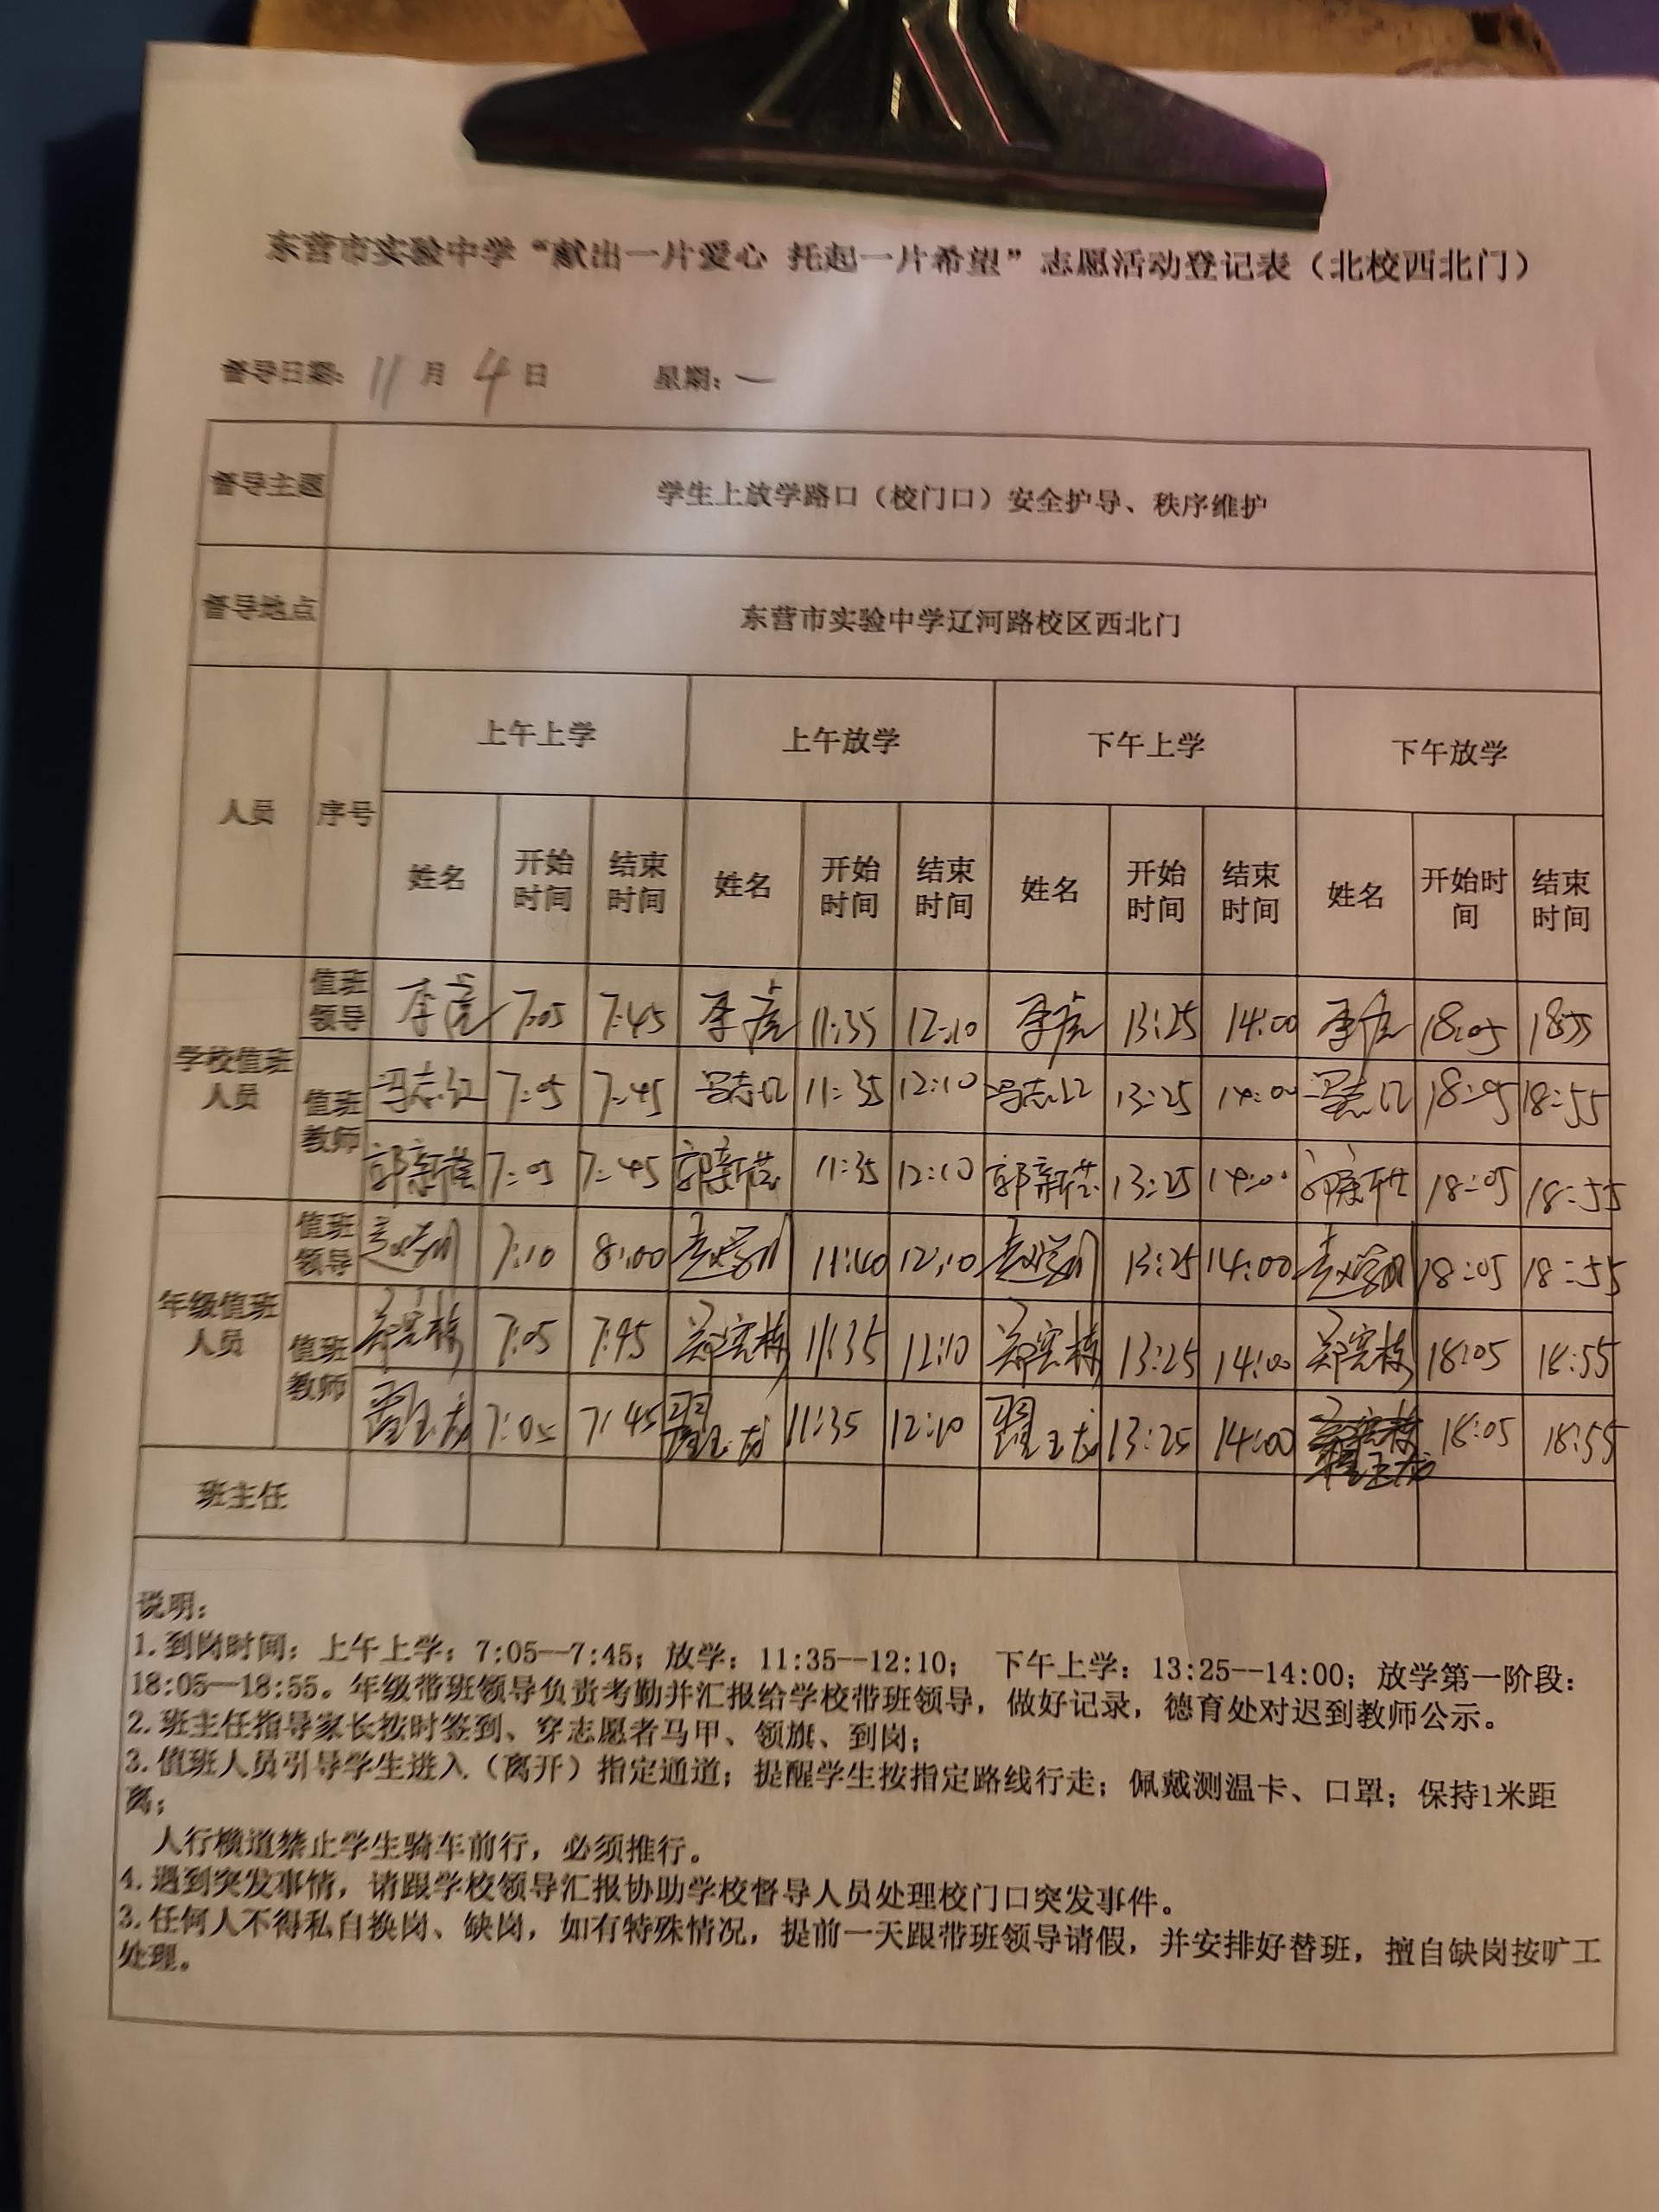 东营市实验中学“献出一片爱心 托起一片希望”志愿活动登记表（北校西北门）
督导日期：11月4日 星期：一
督导主题 学生上放学路口（校门口）安全护导、秩序维护
督导地点 东营市实验中学辽河路校区西北门
人员 序号 上午上学 上午放学 下午上学 下午放学
姓名 开始时间 结束时间 姓名 开始时间 结束时间 姓名 开始时间 结束时间 姓名 开始时间 结束时间
学校值班人员
值班领导 李虎 7:05 7:45 李虎 11:35 12:10 李虎 13:25 14:00 李虎 18:05 18:55
值班教师 冯志江 7:05 7:45 冯志江 11:35 12:10 冯志江 13:25 14:00 冯志江 18:05 18:55
郭新 7:05 7:45 郭新 11:35 12:10 郭新 13:25 14:00 18:05 18:55
年级值班人员
值班领导 7:10 8:00 11:40 12:10 13:25 14:00 18:05 18:55
值班教师 郑宪栋 7:05 7:45 郑宪栋 11:35 12:10 郑宪栋 13:25 14:00 郑宪栋 18:05 18:55
翟玉龙 7:05 7:45 翟玉龙 11:35 12:10 翟玉龙 13:25 14:00 翟玉龙 18:05 18:55
班主任
说明：
1.到岗时间：上午上学：7:05--7:45；放学：11:35--12:10； 下午上学：13:25--14:00；放学第一阶段：
18:05--18:55。年级带班领导负责考勤并汇报给学校带班领导，做好记录，德育处对迟到教师公示。
2.班主任指导家长按时签到、穿志愿者马甲、领旗、到岗；
3.值班人员引导学生进入（离开）指定通道；提醒学生按指定路线行走；佩戴测温卡、口罩；保持1米距
离；
人行横道禁止学生骑车前行，必须推行。
4.遇到突发事情，请跟学校领导汇报协助学校督导人员处理校门口突发事件。
3.任何人不得私自换岗、缺岗，如有特殊情况，提前一天跟带班领导请假，并安排好替班，擅自缺岗按旷工
处理。